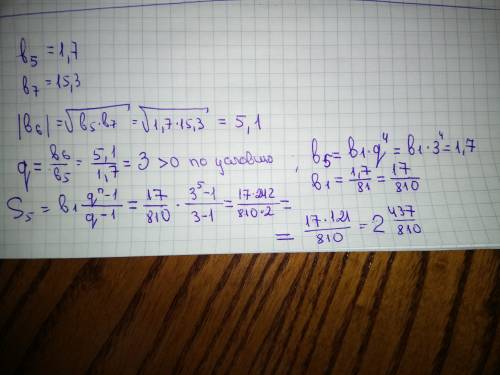 в₅ = 1,7
в₇ = 15,3
|в₆| = √(в₅·в₇) = √(1,7·15,3) = 5,1
q = в₆/в₅ = 5,1/1,7 = 3 >0 по условию ; в₅ = в₁·q⁴ = в₁·3⁴ = 1,7
в₁ = 1,7/81 = 17/810
S₅ = в₁ (qⁿ-1)/(q-1) = 17/810 · (3⁵-1)/(3-1) = 17·242/810·2 =
= 17·121/810 = 2 437/810